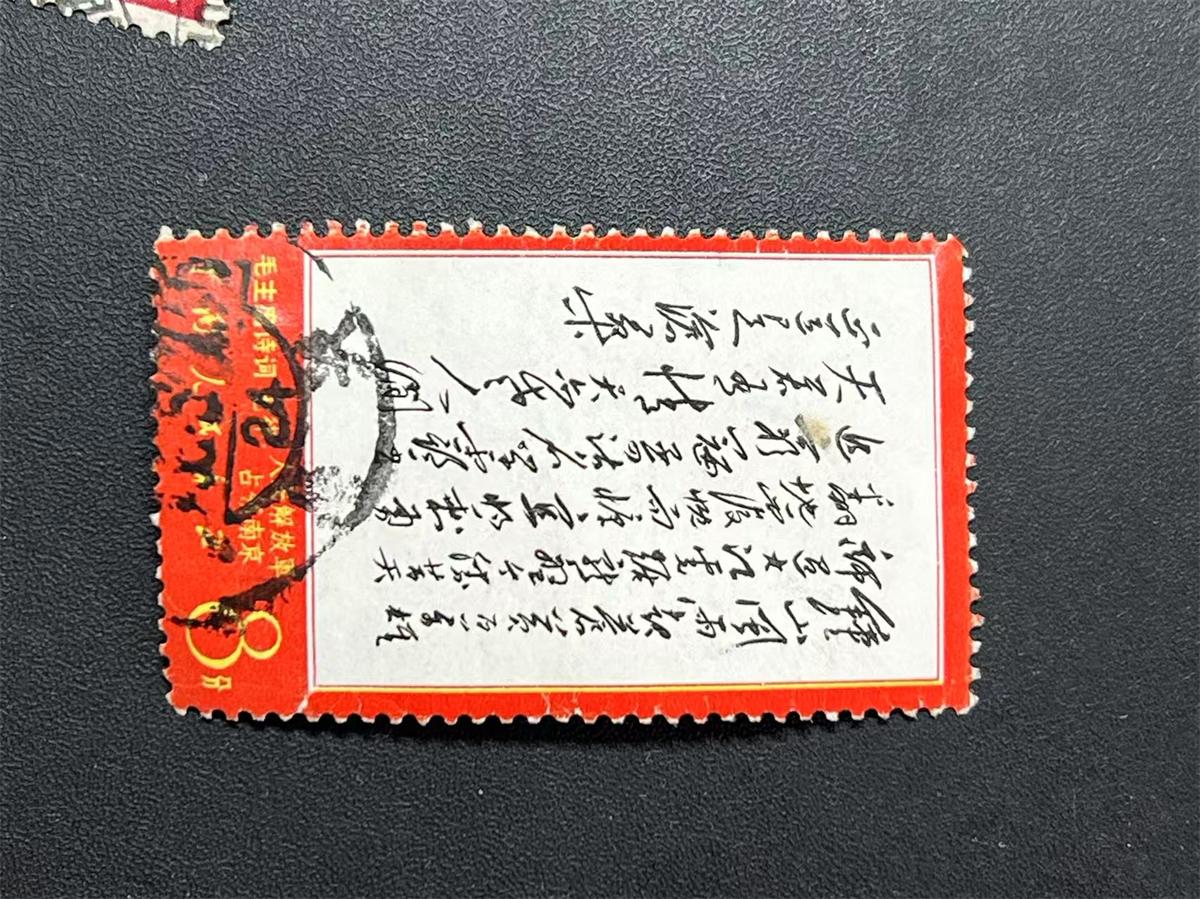 鍾山風雨起蒼黄百万雄
師過大江虎踞龍盤今勝昔天
翻地覆慨而慷宜将剩勇
追窮寇不可沽名学霸王
天若有情天亦老人間
正道是滄桑
毛主席诗词
人民解放军
占领南京
8分